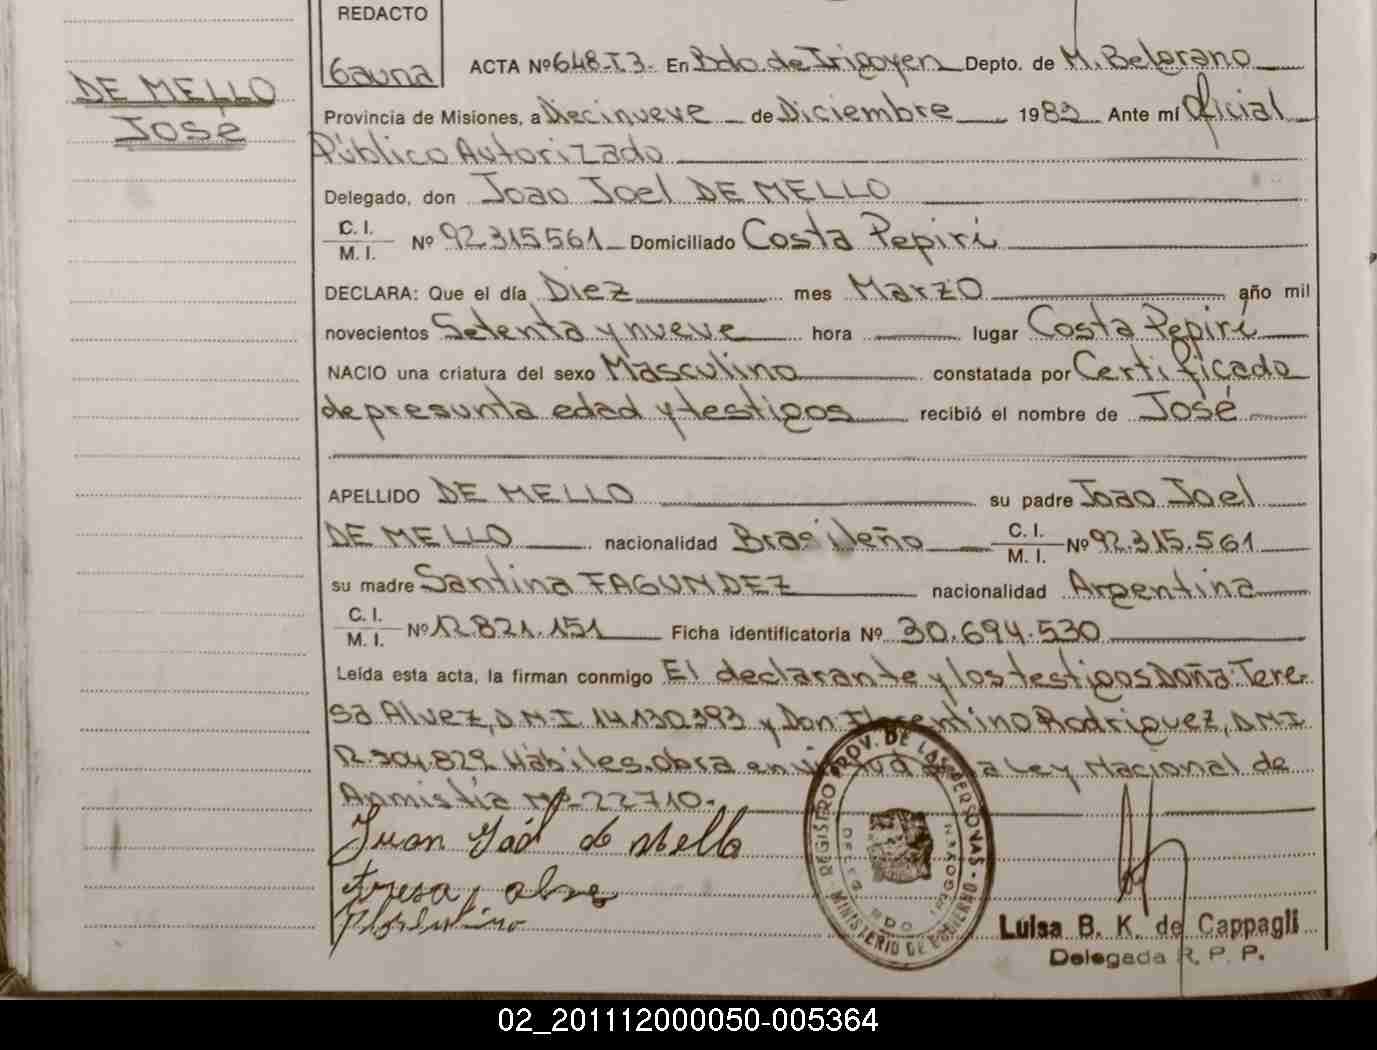 REDACTO
Gauna
DE MELLO
José
ACTA Nº 648-T3- En Bdo. de Irigoyen Depto. de M. Belgrano
Provincia de Misiones, a Diecinueve de Diciembre 1983 Ante mí Oficial
Público Autorizado
Delegado, don Joao Joel DE MELLO
C. I.
M. I. Nº 92.315561 Domiciliado Costa Pepirí
DECLARA: Que el día Diez mes Marzo año mil
novecientos Setenta y nueve hora lugar Costa Pepirí
NACIO una criatura del sexo Masculino constatada por Certificado
de presunta edad y testigos recibió el nombre de José
APELLIDO DE MELLO su padre Joao Joel
DE MELLO nacionalidad Brasileño C. I.
M. I. Nº 92.315.561
su madre Santina FAGUNDEZ nacionalidad Argentina
C. I.
M. I. Nº 12.821.151 Ficha identificatoria Nº 30.694.530
Leída esta acta, la firman conmigo El declarante y los testigos Doña: Tere-
sa Alvez, D.M.I. 14130393 y Don Florentino Rodriguez, D.M.I.
12.304.829 Hábiles. Obra en virtud a la Ley Nacional de
Anmistía Nº 22710.-
Juan de Mello
Florentino
REGISTRO PROV. DE LAS PERSONAS - MINISTERIO DE GOBIERNO
DELEG. BDO IRIGOYEN
Luisa B. K. de Cappagli
Delegada R. P. P.
02_201112000050-005364